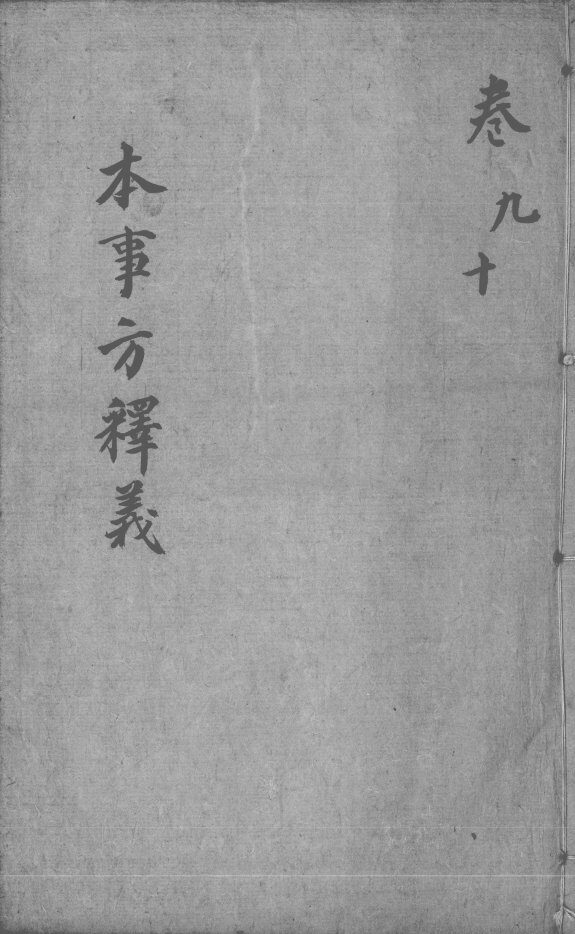 卷九十
本事方釋義